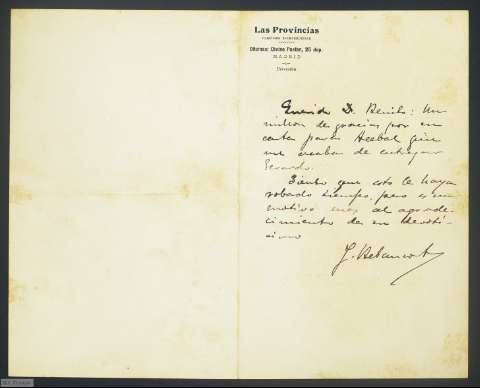 Las Provincias
Oficinas: Divino Pastor, 25 dup.
MADRID
Dirección
Querido D. Benito: Un
millon de gracias por su
carta para Acebal que
me acaban de entregar
Gerardo.
Siento que esto le haya
robado tiempo, pero es un
motivo mas al agrade-
cimiento de su devotí-
simo
J. Betancort